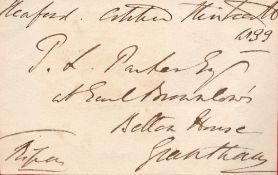 Sleaford. October thirteen
1839
T. L. Parker Esq
at Earl Brownlow's
Belton House
Grantham
Ripon